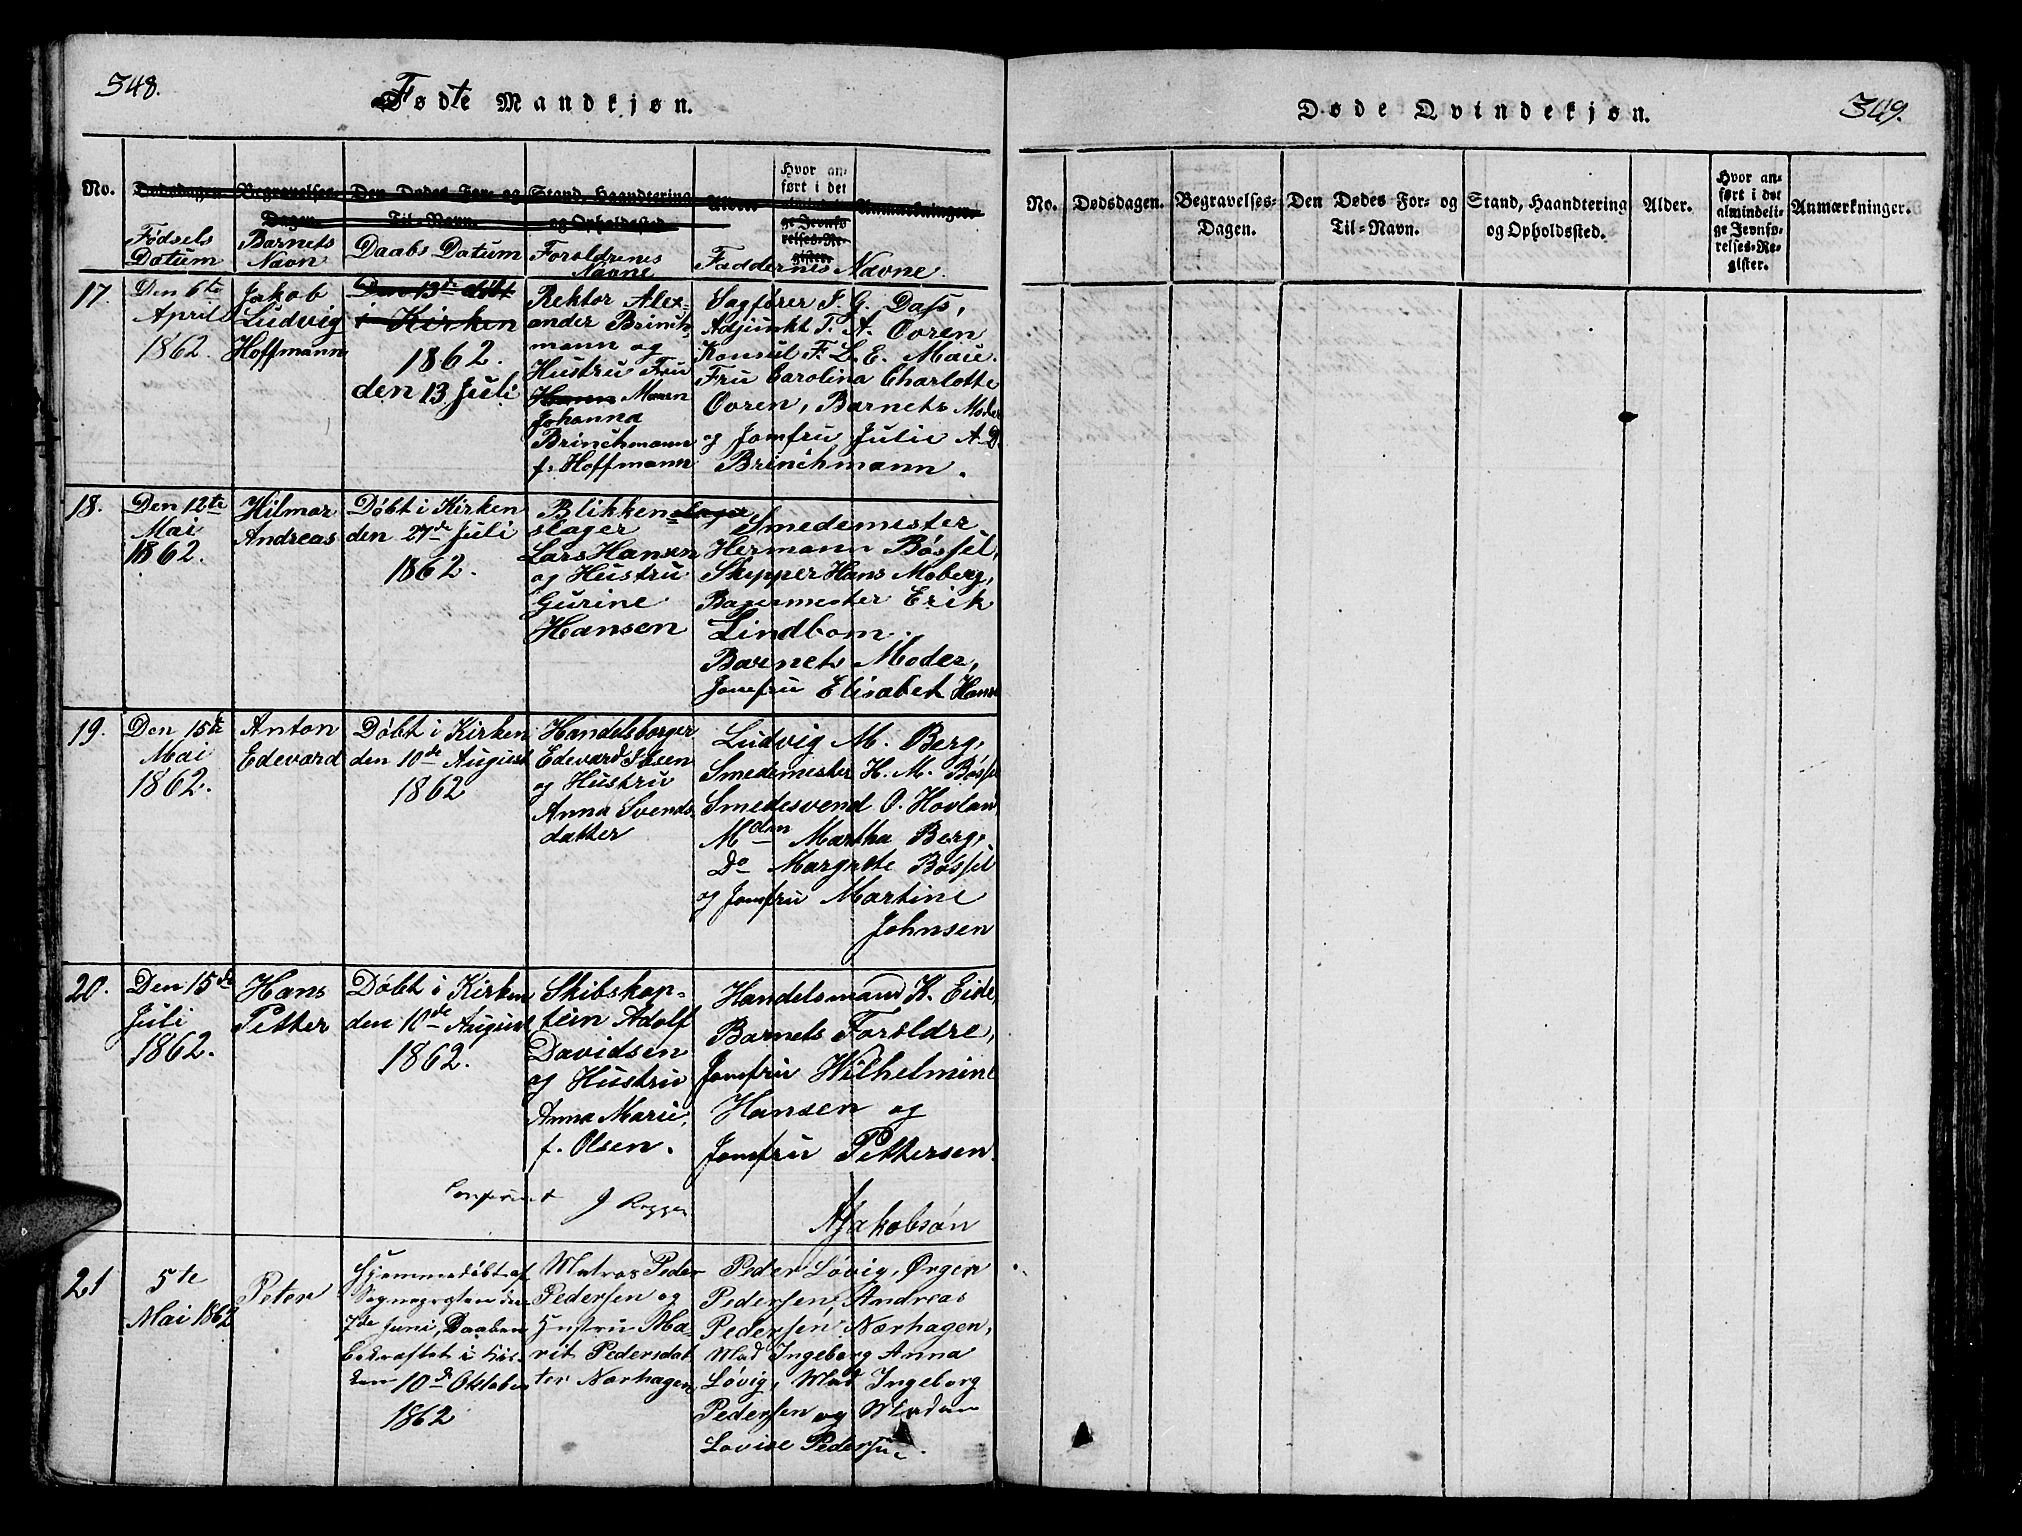 348.
Fødte Mandkjøn.
No.
Dødsdagen.
Begravelses-
Dagen.
Den Dødes For- og
Til-Navn.
Stand, Haandtering
og Opholdssted.
Alder.
Hvor an-
ført i det
almindeli-
ge Jevnfø-
relses-Re-
gister.
Anmærkninger.
Fødsels
Datum
Barnets
Navn
Daabs Datum
Forældrenes
Navne
Faddernes Navne.
17.
Den 6te
April
1862.
Jakob
Ludvig
Hoffmann
Den 13de døbt
i Kirken
1862.
den 13 Juli
Rektor Alex-
ander Brinch-
mann og
Hustru Fru
Hann Maren
Johanna
Brinchmann
f. Hoffmann
Sagfører J. G. Dass,
Adjunkt T. A. Ovren
Konsul F. L. E. Maie.
Fru Carolina Charlotte
Ovren, Barnets Moder
og Jomfru Julie A. D.
Brinchmann.
18.
Den 12te
Mai
1862.
Hilmar
Andreas
Døbt i Kirken
den 27de Juli
1862.
Blikken=slager
slager
Lars Hansen
og Hustru
Gurine
Hansen
Smedemester
Hermann Bøssel,
Skipper Hans Moberg,
Bagermester Erik
Lindbom.
Barnets Moder,
Jomfru Elisabet Hanse
19.
Den 15de
Mai
1862.
Anton
Edevard
Døbt i Kirken
den 10de August
1862
Handelsborger
Edevard Olsen
og Hustru
Anna Svends-
datter
Ludvig M. Berg,
Smedemester H. M. Bøsse
Smedesvend O. Hovlan
Mdm Martha Berg,
Do Margrete Bøssel
og Jomfru Martine
Johnsen
20.
Den 15de
Juli
1862.
Hans
Petter
Døbt i Kirken
den 10de August
1862.
Skibskap-
tein Adolf
Davidsen
og Hustru
Anna Marie,
f. Olsen.
Handelsmand K. Eide,
Barnets Forældre,
Jomfru Wilhelmine
Hansen og
Jomfru Pettersen.
Conferert
J
AJakobsøn
21
5te
Mai 1862
Peter
Hjemmedøbt af
Sognepresten den
7de Juni, Daaben
bekræftet i Kir-
ken 10de Oktober
1862
Matros Peder
Pedersen og
Hustru Ma-
rit Pedersdat
ter Nærhagen
Peder Løvig, Ørgen
Pedersen, Andreas
Pedersen Nærhagen,
Mad Ingeborg Anna
Løvig, Mad Ingeborg
Pedersen og Madam
Lovise Pedersen.
Døde Qvindekjøn.
349.
No.
Dødsdagen.
Begravelses-
Dagen.
Den Dødes For- og
Til-Navn.
Stand, Haandtering
og Opholdssted.
Alder.
Hvor an-
ført i det
almindeli-
ge Jevnfø-
relses-Re-
gister.
Anmærkninger.